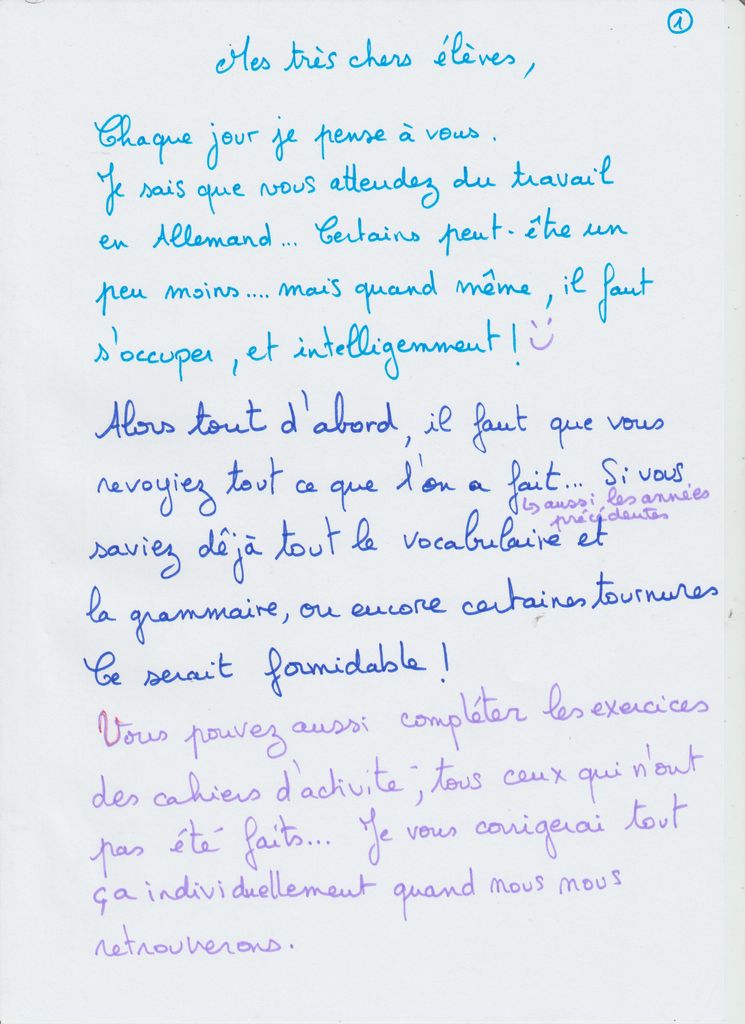 ①
Mes très chers élèves,
Chaque jour je pense à vous.
Je sais que vous attendez du travail
en Allemand... Certains peut-être un
peu moins.... mais quand même, il faut
s'occuper, et intelligemment! :)
Alors tout d'abord, il faut que vous
revoyiez tout ce que l'on a fait... Si vous
↳ aussi les années
précédentes
saviez déjà tout le vocabulaire et
la grammaire, ou encore certaines tournures
Ce serait formidable!
Vous pouvez aussi compléter les exercices
des cahiers d'activité, tous ceux qui n'ont
pas été faits... Je vous corrigerai tout
ça individuellement quand nous nous
retrouverons.